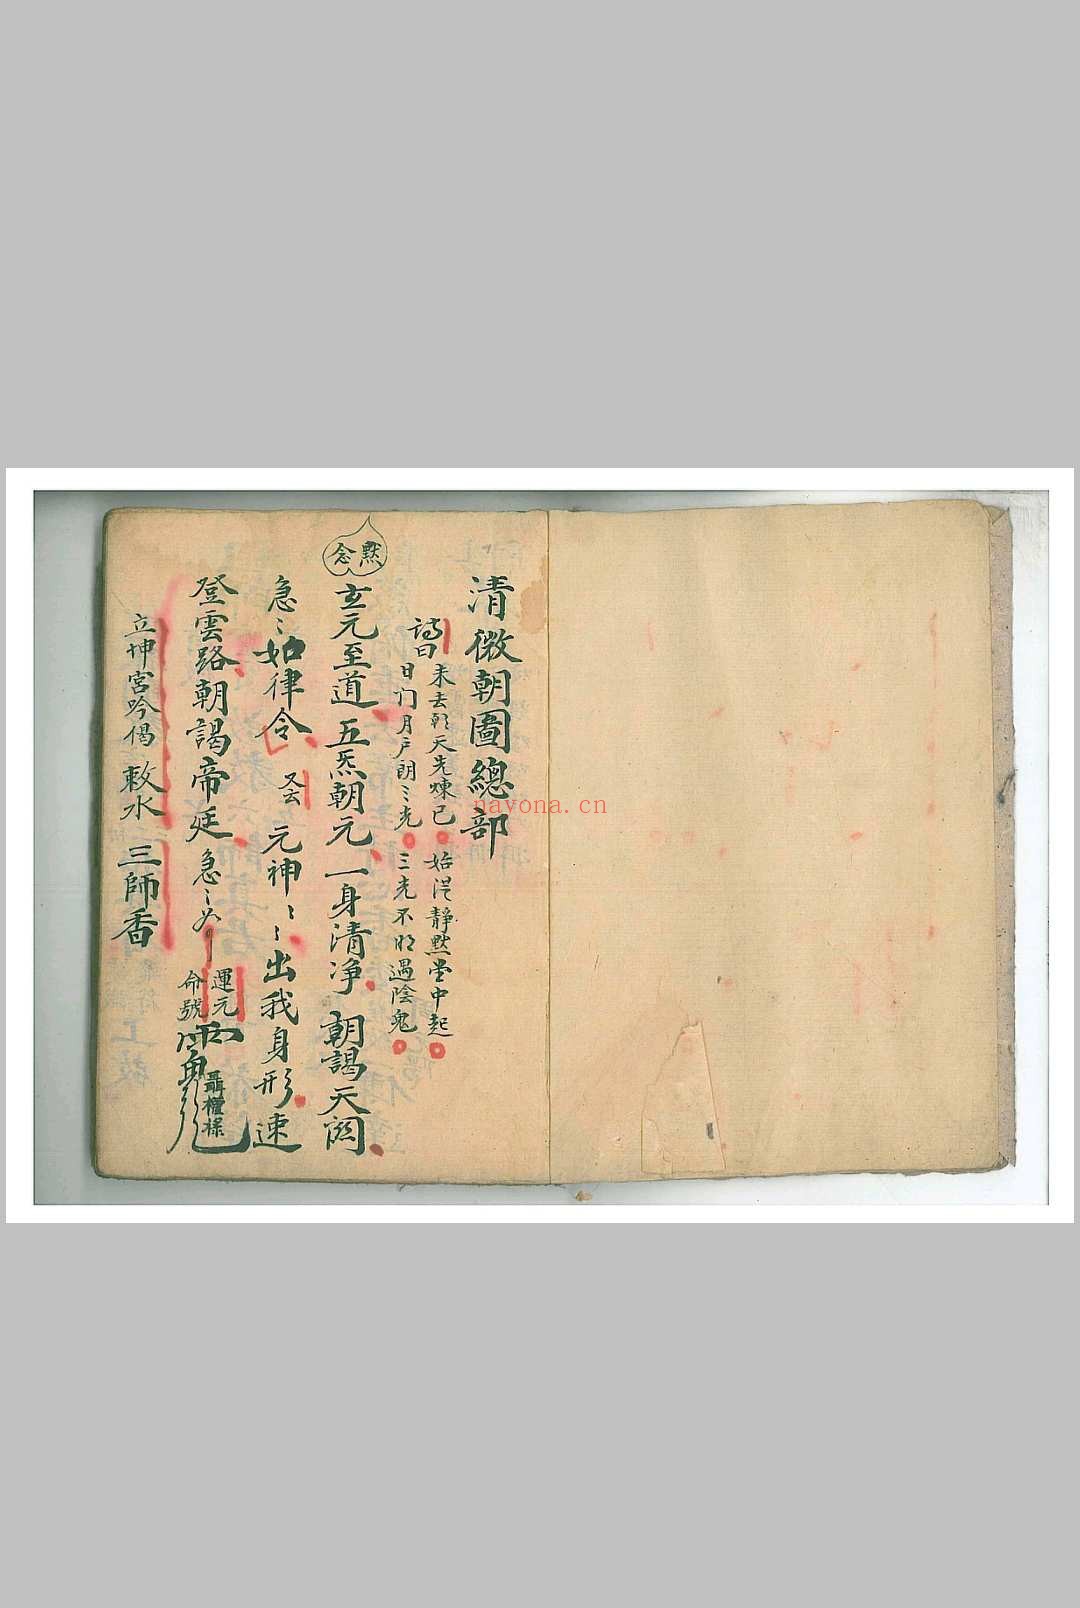 清微朝圖總部
詩曰 未去朝天先煉己 始從靜默堂中起
日门月户朗〻光 三光不明遇陰鬼
默念
玄元至道 五炁朝元 一身清净 朝謁天闕
急〻如律令 又云 元神〻〻 出我身形 速
登雲路 朝謁帝廷 急〻如
運元
命號
立坤宮吟偈 敕水 三師香
nayona.cn